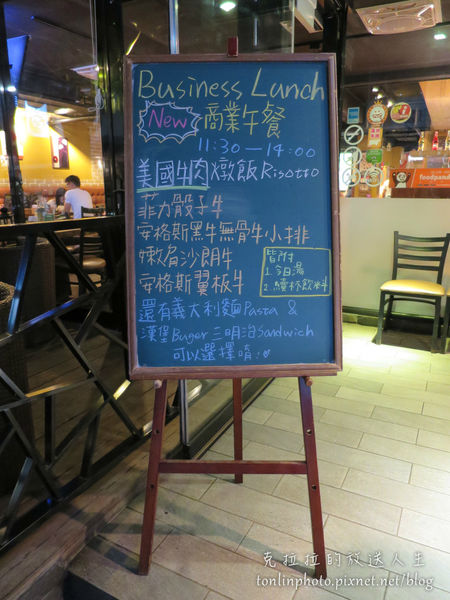 Business Lunch
New 商業午餐
11:30－14:00
美國牛肉燉飯Risotto
菲力骰子牛
安格斯黑牛無骨牛小排
嫩肩沙朗牛
安格斯翼板牛
皆附
1.今日湯
2.續杯飲料
還有義大利麵Pasta &
漢堡Buger三明治Sandwich
可以選擇唷!
foodpanda
克拉拉的放送人生
tonlinphoto.pixnet.net/blog